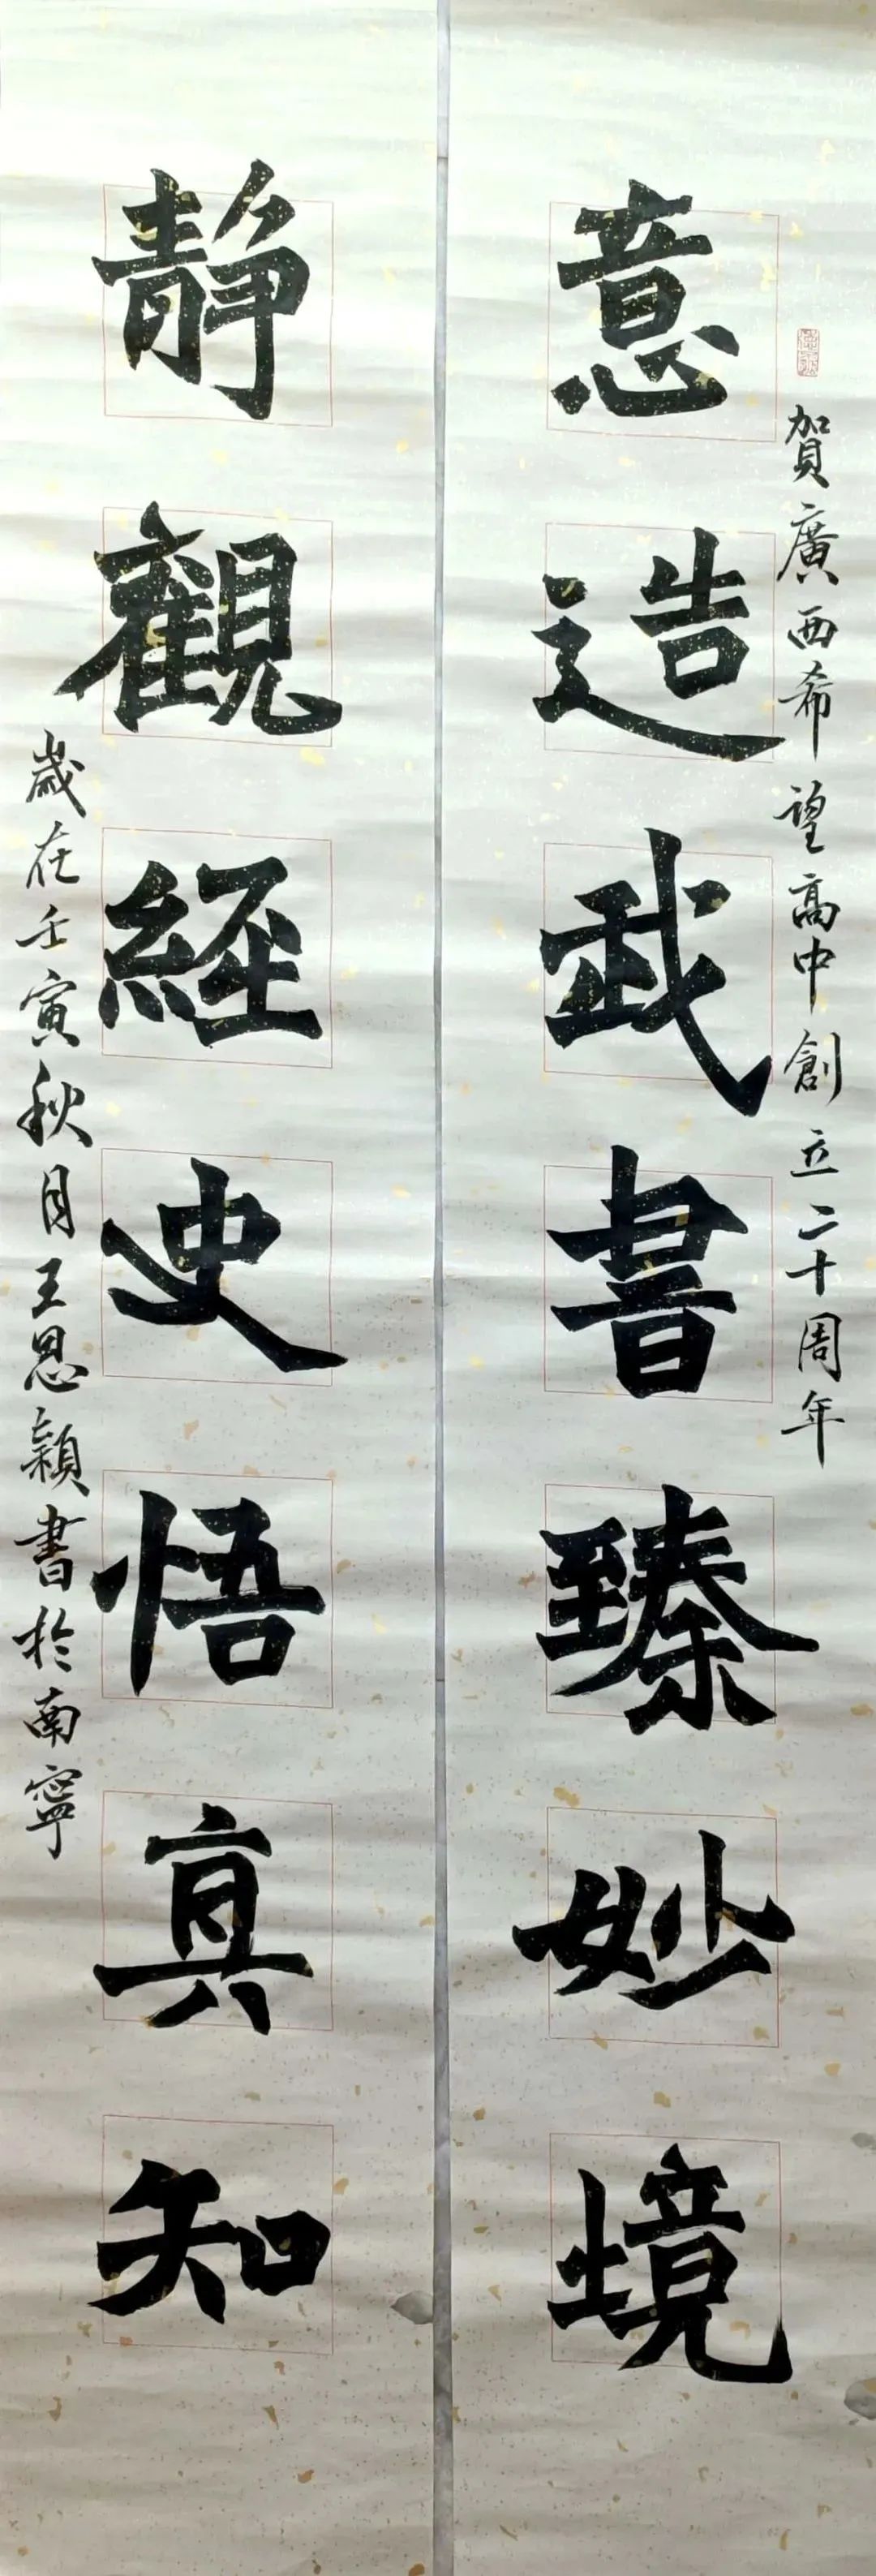 賀廣西希望高中創立二十周年
意造武書臻妙境
靜觀經史悟真知
歲在壬寅秋月王思穎書於南寧